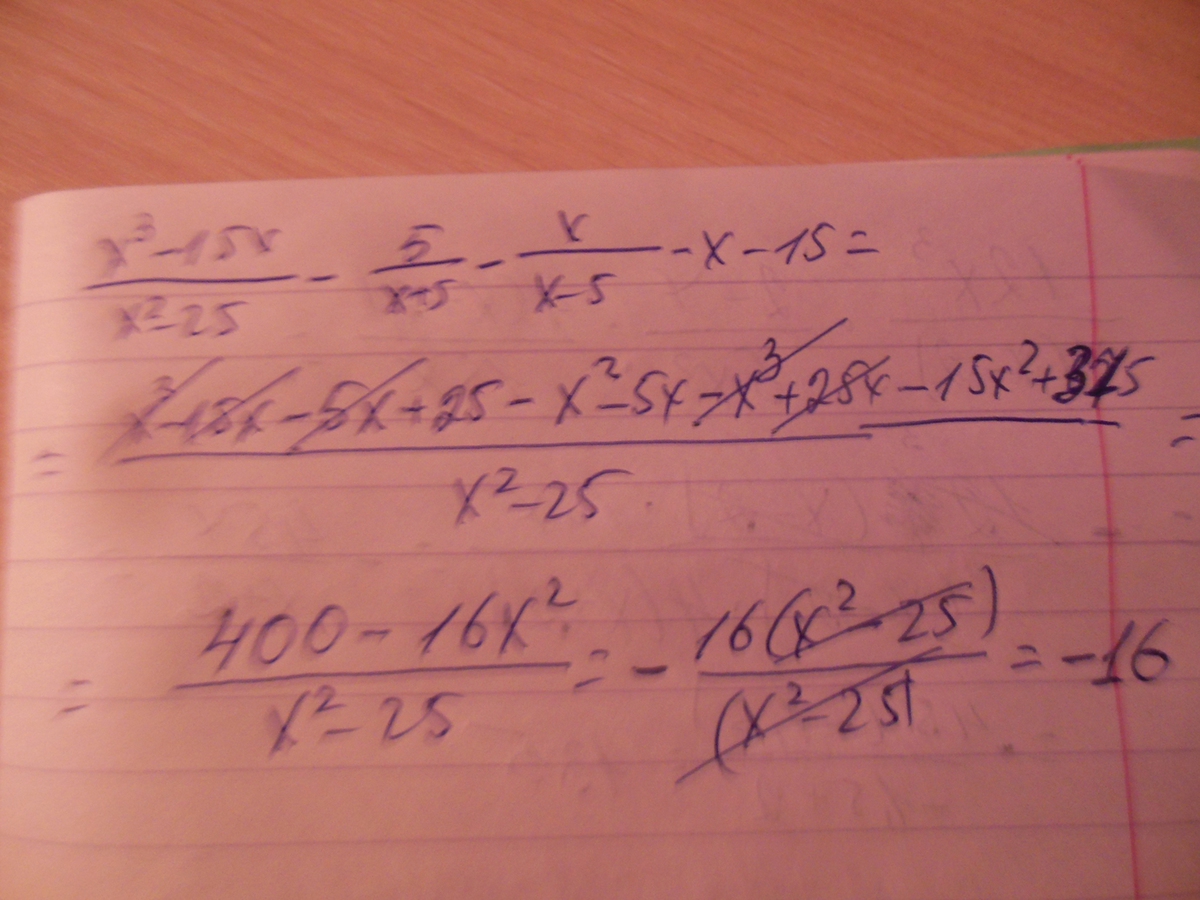 x³-15x/x²-25 - 5/x+5 - x/x-5 - x - 15 =
= x³-15x-5x+25-x²-5x-x³+25x-15x²+375/x²-25 =
= 400-16x²/x²-25 = - 16(x²-25)/(x²-25) = -16